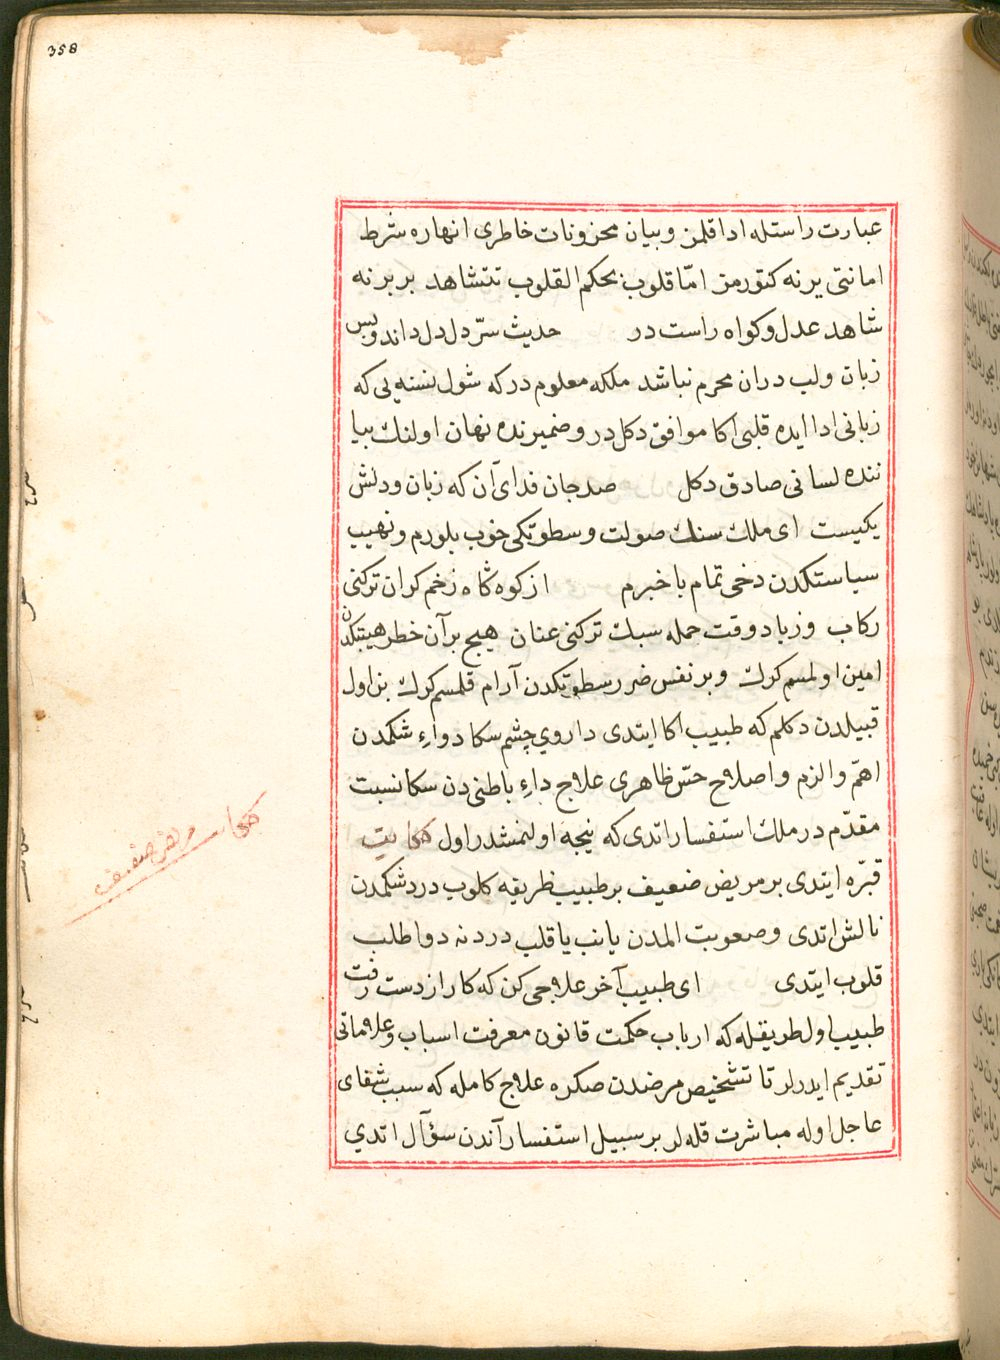 358
عبارت راستله ادا قلمز و بیان مخزونات خاطری انهاره شرط
امانتی یرنه کتورمز امّا قلوب بحکم القلوب تتشاهد بربرنه
شاهد عدل و کواه راست در حدیث سرّ دل دل داند و بس
زبان و لب دران محرم نباشد ملکه معلوم در که شول نسنه یی که
زبانی ادا ایده قلبی اکا موافق دکل در و ضمیرنده نهان اولنک بیا
ننده لسانی صادق دکل صد جان فدای آن که زبان و دلش
یکیست ای ملک سنک صولت و سطوتکی خوب بلورم و نهیب
سیاستکدن دخی تمام با خبرم از کوه کاه زخم کران ترکنی
رکاب و زباد وقت حمله سبک ترکنی عنان هیچ بر آن خطر هیبتکدن
امین اولمسم کرک و بر نفس ضرر سطوتکدن آرام قلمسم کرک بن اول
قبیلدن دکلم که طبیب اکا ایتدی داروی چشم سکا دواء شکمدن
اهمّ و الزم و اصلاح حسّ ظاهری علاج داء باطنی دن سکا نسبت
مقدّم در ملک استفسار اتدی که نیجه اولنمشدر اول حکایت
قبّره ایتدی بر مریض ضعیف بر طبیب ظریفه کلوب درد شکمدن
نالش اتدی و صعوبت المدن یانب یاقلب دردنه دوا طلب
قلوب ایتدی ای طبیب آخر علاجی کن که کار از دست رفت
طبیب اول طریقله که ارباب حکمت قانون معرفت اسباب و علاماتی
تقدیم ایدرلر تا تشخیص مرضدن صکره علاج کامله که سبب شفای
عاجل اوله مباشرت قله لر بر سبیل استفسار آندن سؤآل اتدی
حکایت مریض ضعیف